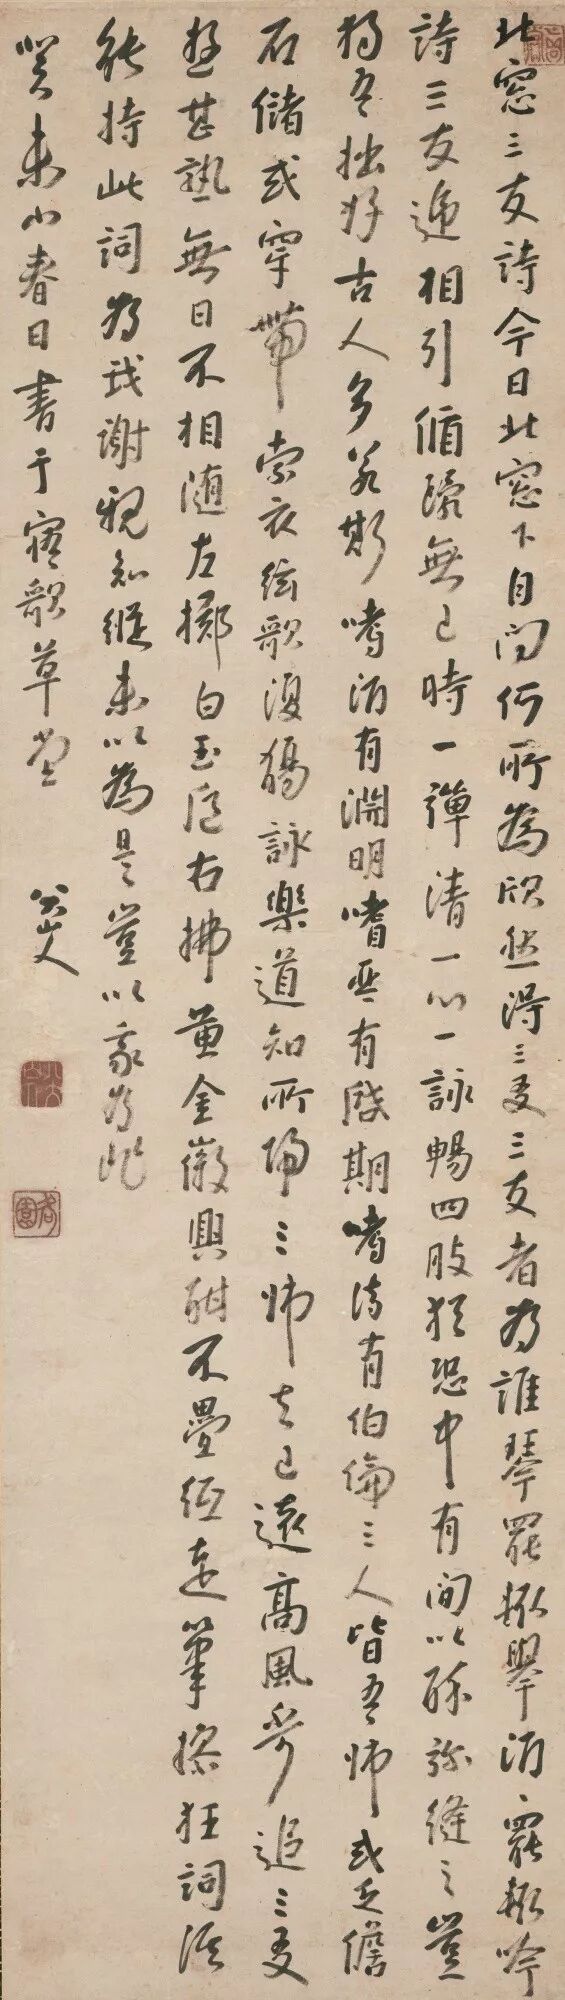 北窓三友詩今日北窓下自問何所為欣然得三友三友者為誰琴罷輒舉酒〻罷輒吟
詩三友遞相引循環無已時一彈清一心一詠暢四肢猶恐中有間以酔弥縫之豈
獨吾拙好古人多若斯嗜酒有淵明嗜琴有啟期嗜詩有伯倫三人皆吾師或乏儋
石儲或穿帶索衣絃歌復觴詠樂道知所歸三師去已遠高風不可追三友
遊甚熟無日不相随左擲白玉卮右拂黃金徽興酣不疊紙走筆操狂詞誰
能持此詞為我謝親知縱未以為是豈以我為非
癸未小春日書于寤歌草堂
八大山人
八大山人
何園